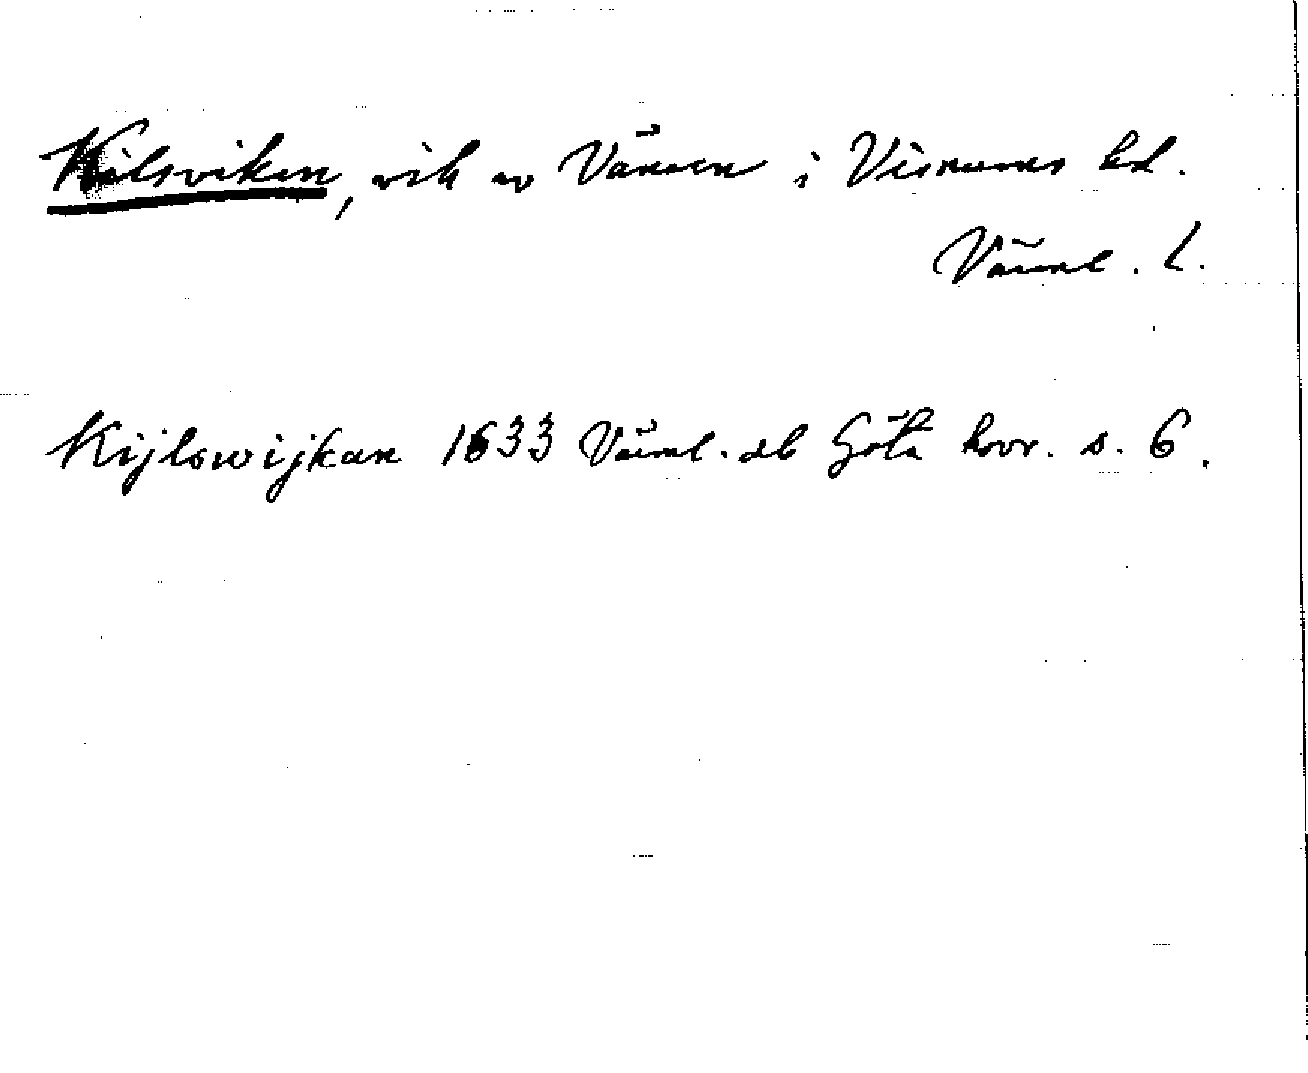 Kilsviken, vik av Vänern i Visnums hd.
Värml. l.
Kijlswijkan 1633 Värml. db Göta hovr. s. 6.